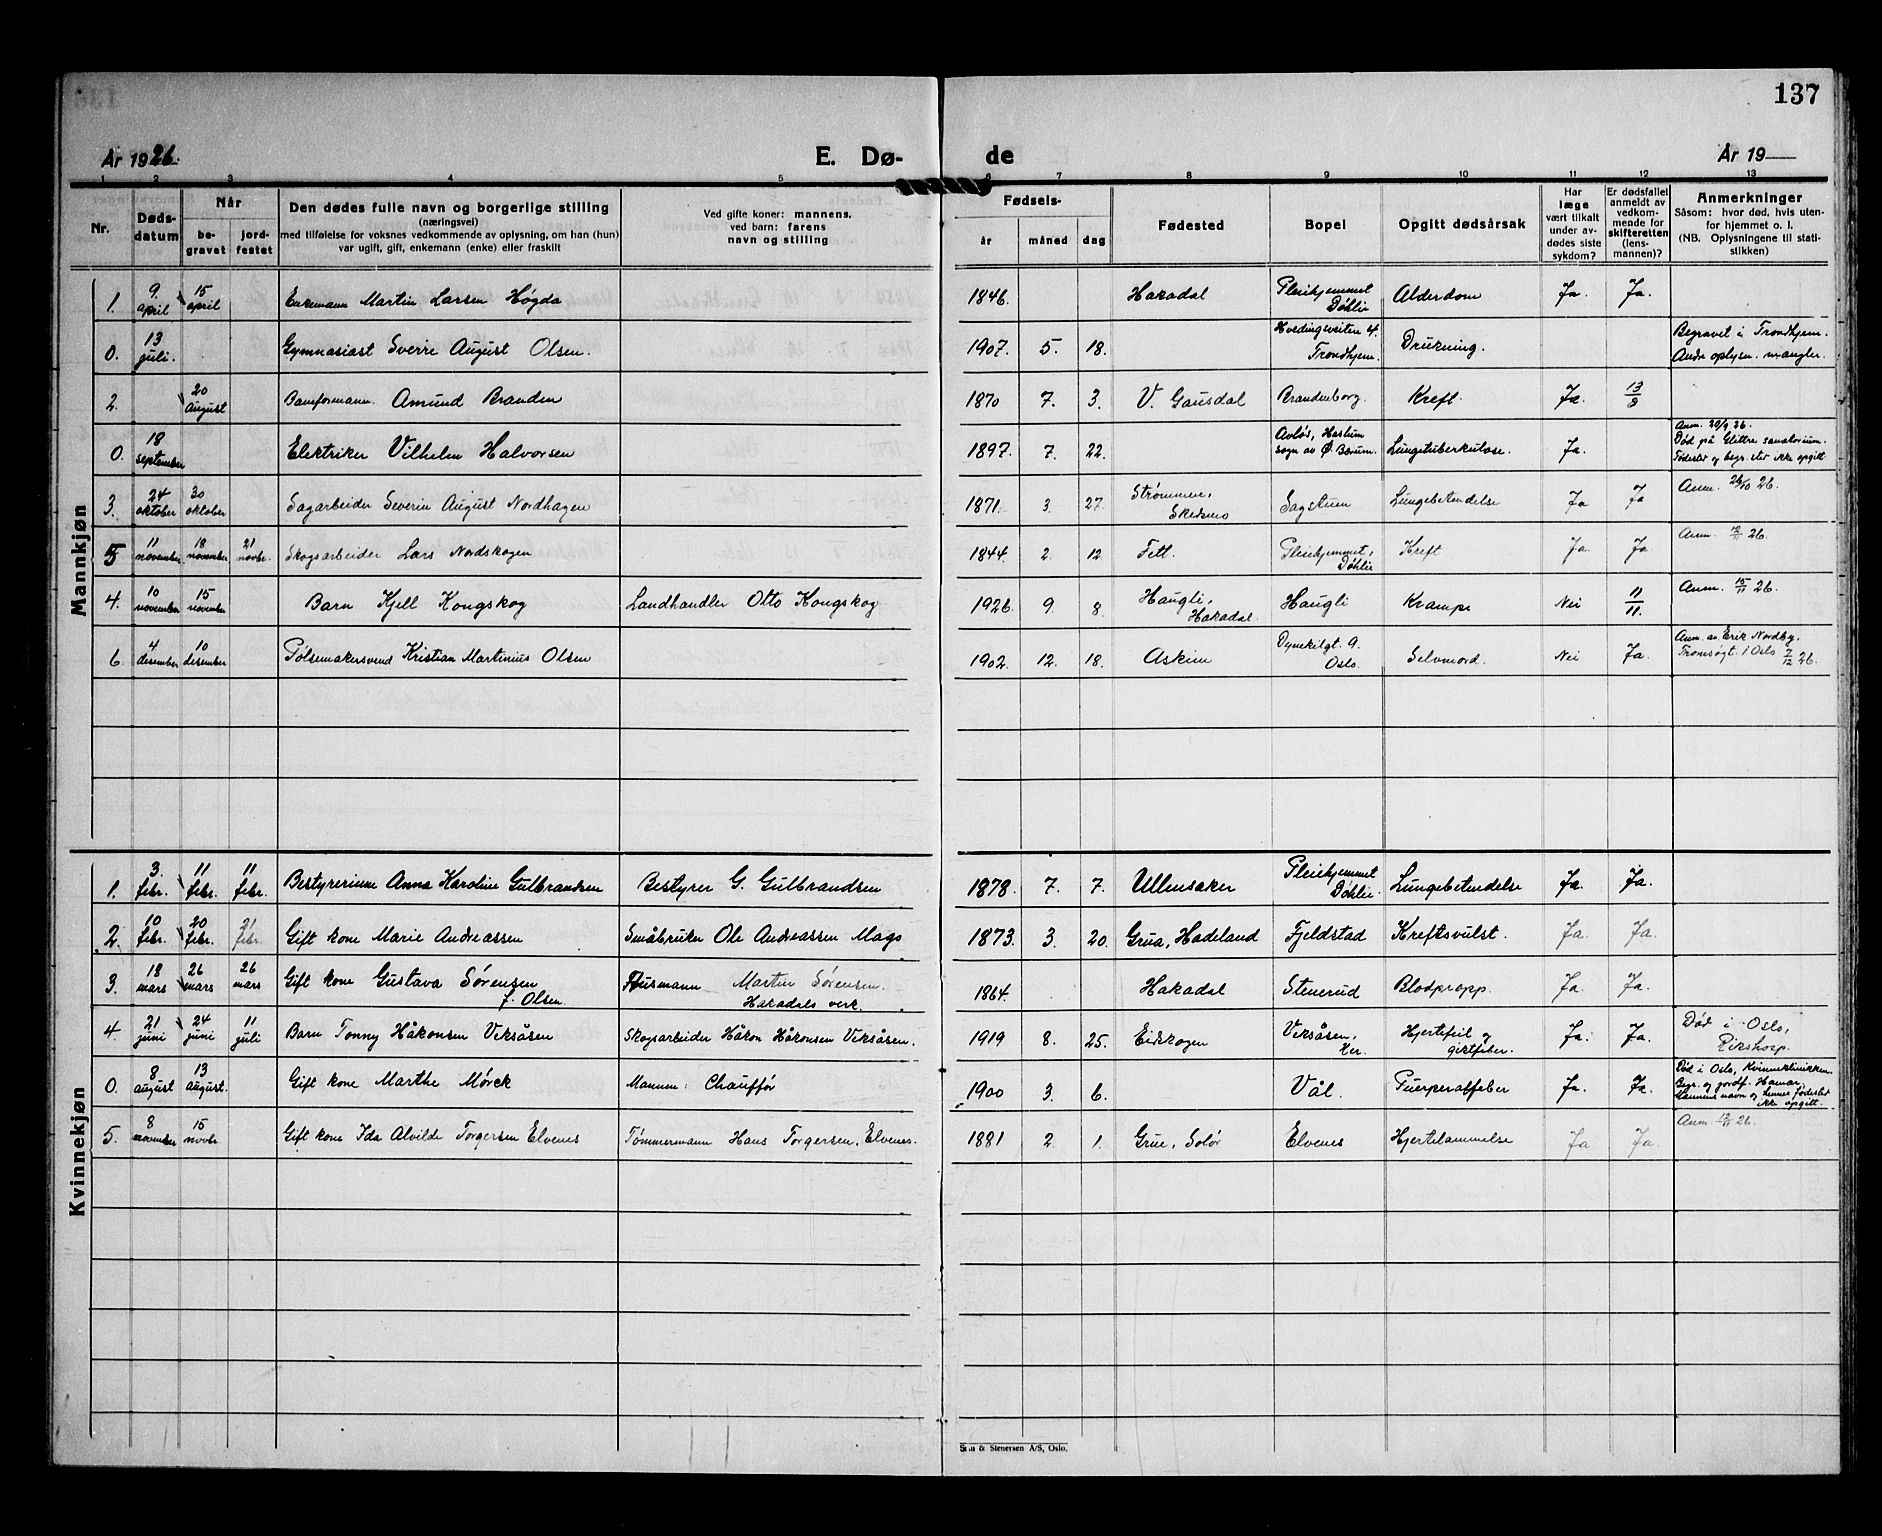 137
År 1926.
E. Dø-
de
År 19
1 2 3 4 5 6 7 8 9 10 11 12 13
Nr.
Døds-
datum
Når
be-
gravet
jord-
festet
Den dødes fulle navn og borgerlige stilling
(næringsvei)
med tilføielse for voksnes vedkommende av oplysning, om han (hun)
var ugift, gift, enkemann (enke) eller fraskilt
Ved gifte koner: mannens,
ved barn: farens
navn og stilling
Fødsels-
år
måned
dag
Fødested
Bopel
Opgitt dødsårsak
Har
læge
vært tilkalt
under av-
dødes siste
sykdom?
Er dødsfallet
anmeldt av
vedkom-
mende for
skifteretten
(lens-
mannen)?
Anmerkninger
Såsom: hvor død, hvis uten-
for hjemmet o. l.
(NB. Oplysningene til stati-
stikken)
Mannkjøn
1. 9 april 15 april Enkemann Martin Larsen Høgda 1846. Hakadal Pleiehjemmet Døhlie Alderdom Ja. Ja.
0. 13 juli. Gymnasiast Sverre August Olsen. 1907. 5. 18. Trondhjem. Drukning. Begravet i Trondhjem.
Andre oplysn. mangler.
2. 20 August Baneformann Amund Branden 1870 7. 3. V. Gausdal Brandenborg. Kreft. Ja. 13/8
0. 18 september Elektriker Vilhelm Halvorsen 1897. 7. 22. Avløs, Haslum sogn av Ø. Bærum. Lungetuberkulose. Ja. Anm. 20/9 26.
Død på Glittre sanatorium.
Fødested og begr. sted ikke opgitt
3. 24 oktober 30 oktober Sagarbeider Severin August Nordhagen 1871. 3. 27. Strømmen, Skedsmo Sagstuen Lungebetendelse Ja Ja Anm. 26/10 26.
5 11 november. 18 november 21 novbr. Skogsarbeider Lars Nordskogen 1844 2. 12. Fett. Pleiehjemmet, Døhlie Kreft Ja. Ja Anm. 12/11 26.
4. 10 november 15 november Barn Kjell Kongskog Landhandler Otto Kongskog 1926. 9. 8. Haugli, Hakadal. Haugli Krampe Nei 11/11. Anm. 15/11 26.
6. 4 desember 10 desember Pølsemakersvend Kristian Martinius Olsen 1902. 12. 18. Askim Dynekilgt. 9. Oslo. Selvmord. Nei Ja. Anm. av Erik Nordby.
Tromsøgt. i Oslo 7/12 26.
Kvinnekjøn
1. 3. febr. 11 febr. 11 febr. Bestyrerinne Anna Karoline Gulbrandsen Bestyrer G. Gulbrandsen 1878. 7. 7. Ullensaker Pleiehjemmet Døhlie. Lungebetendelse Ja. Ja.
2. 10 febr. 20 febr. 21 febr. Gift kone Marie Andreassen Småbruker Ole Andreassen Mago 1873. 3. 20. Grua, Hadeland Fjeldstad Kreftsvulst. Ja. Ja.
3. 18 mars 26 mars 26 mars Gift kone Gustava Sørensen f. Olsen Husmann Martin Sørensen. Hakadals verk. 1864. Hakadal Stenerud Blodpropp. Ja. Ja.
4. 21 juni 24 juni 11 juli Barn Tonny Håkonsen Veksåsen Skogsarbeider Håkon Håkonsen Veksåsen. 1919 8. 25. Eidskogen Veksåsen, Her. Hjertefeil og giktfeber. Ja. Ja. Død i Oslo,
Rikshosp.
0. 8 august 13 august. Gift kone Marthe Mørck Mannen: Chauffør 1900 3. 6. Vål. Puerperalfeber Ja. Ja. Død i Oslo, Kvinneklinikken.
Begr. og jordf. Hamar.
Mannens navn og hennes fødested
ikke opgitt.
5. 8 november 15 novbr. Gift kone Ida Alvilde Torgersen Elvenes Tømmermann Hans Torgersen, Elvenes. 1881 2. 1. Grue, Solør Elvenes Hjertelammelse Ja Ja. Anm. 12/11 26.
& Stenersen A/S, Oslo.